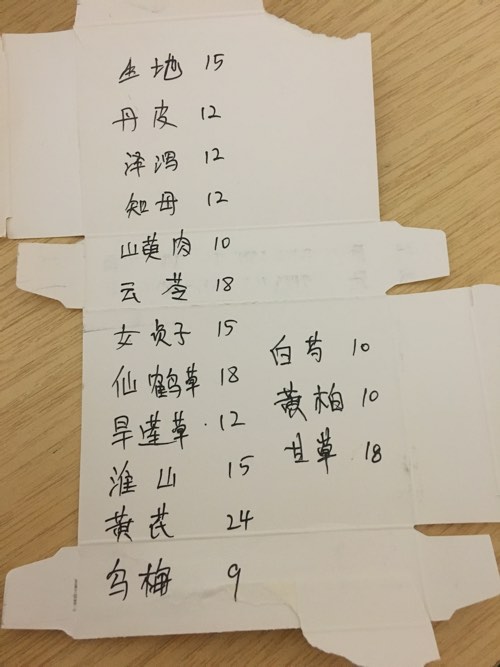 生地 15
丹皮 12
泽泻 12
知母 12
山萸肉 10
云苓 18
女贞子 15
仙鹤草 18
旱莲草 12
淮山 15
黄芪 24
乌梅 9
白芍 10
黄柏 10
甘草 18